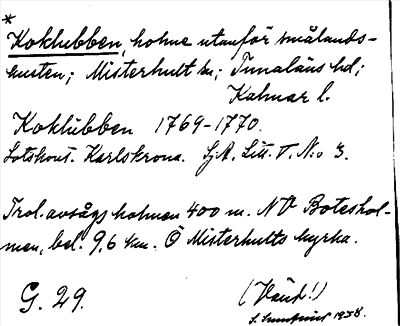 *
Koklubben, holme utanför smålands-
kusten; Misterhult sn; Tunaläns hd;
Kalmar l.
Koklŭbben 1769-1770.
Lotskont. Karlskrona. SjA. Litt. V. N:o 3.
Trol. avsågs holmen 400 m. NV Boteshol-
men, bel. 9,6 km. Ö Misterhults kyrka.
G. 29.
(Vänd!)
1958.